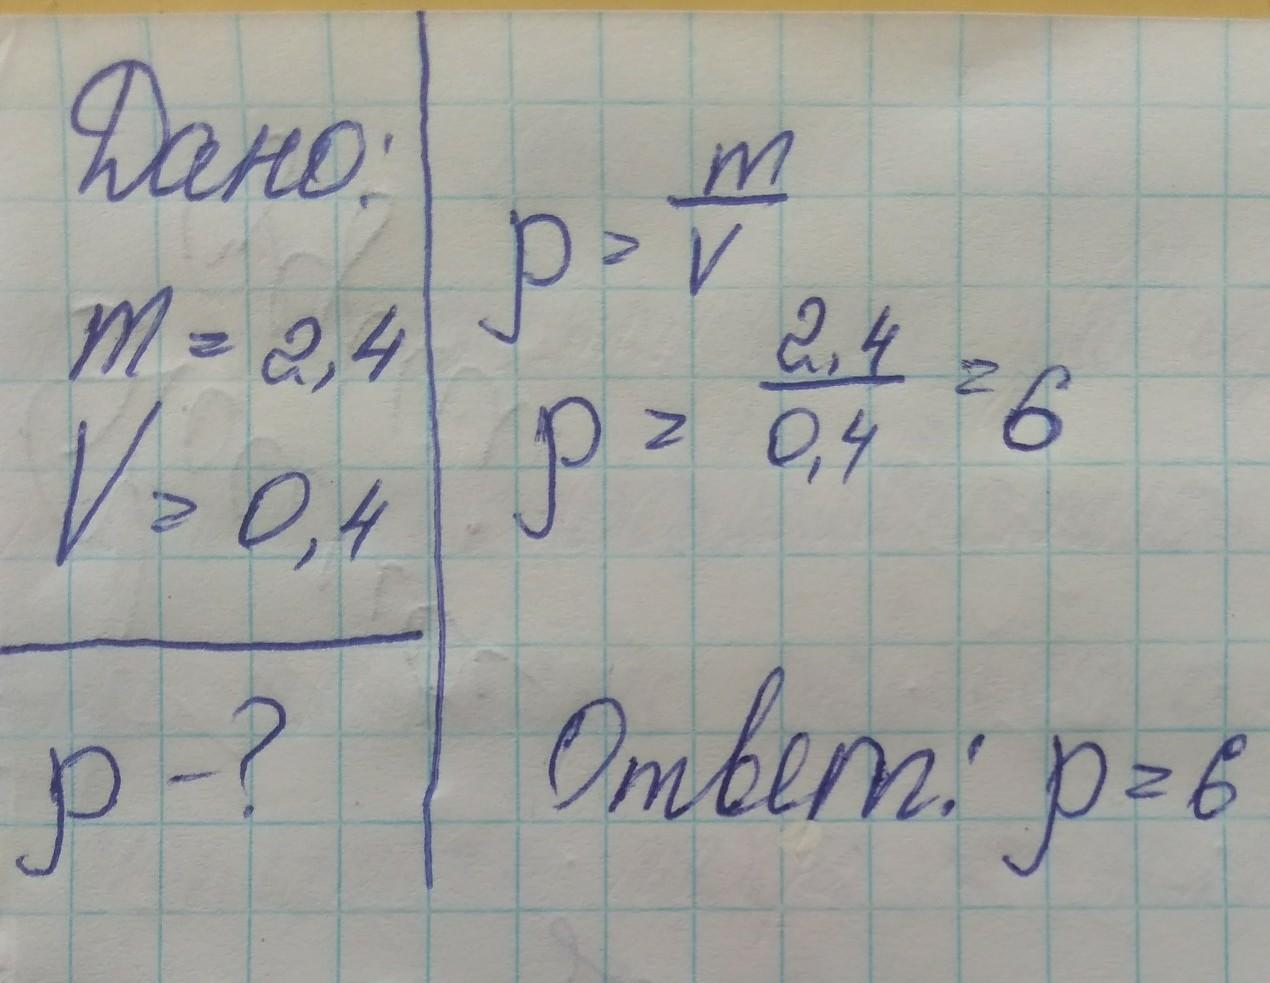 Дано:
m = 2,4
V = 0,4
p - ?
p = m/V
p = 2,4/0,4 = 6
Ответ: p = 6